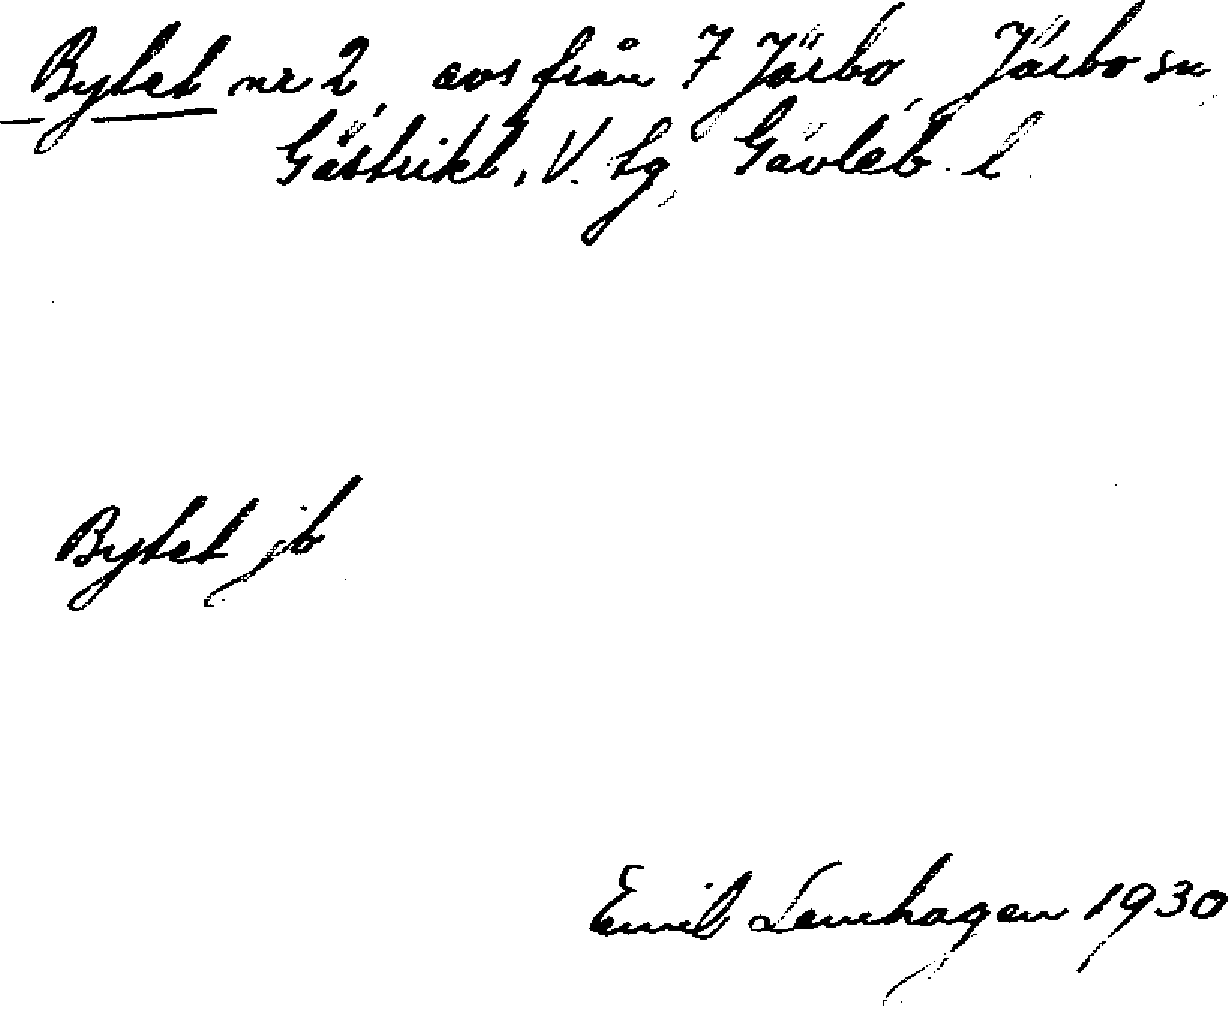 Bytet nr 2, avs från 7 Järbo, Järbo sn,
Gästrikl, V. tg, Gävleb. l.
Bytet jb
Emil Lenhagen 1930